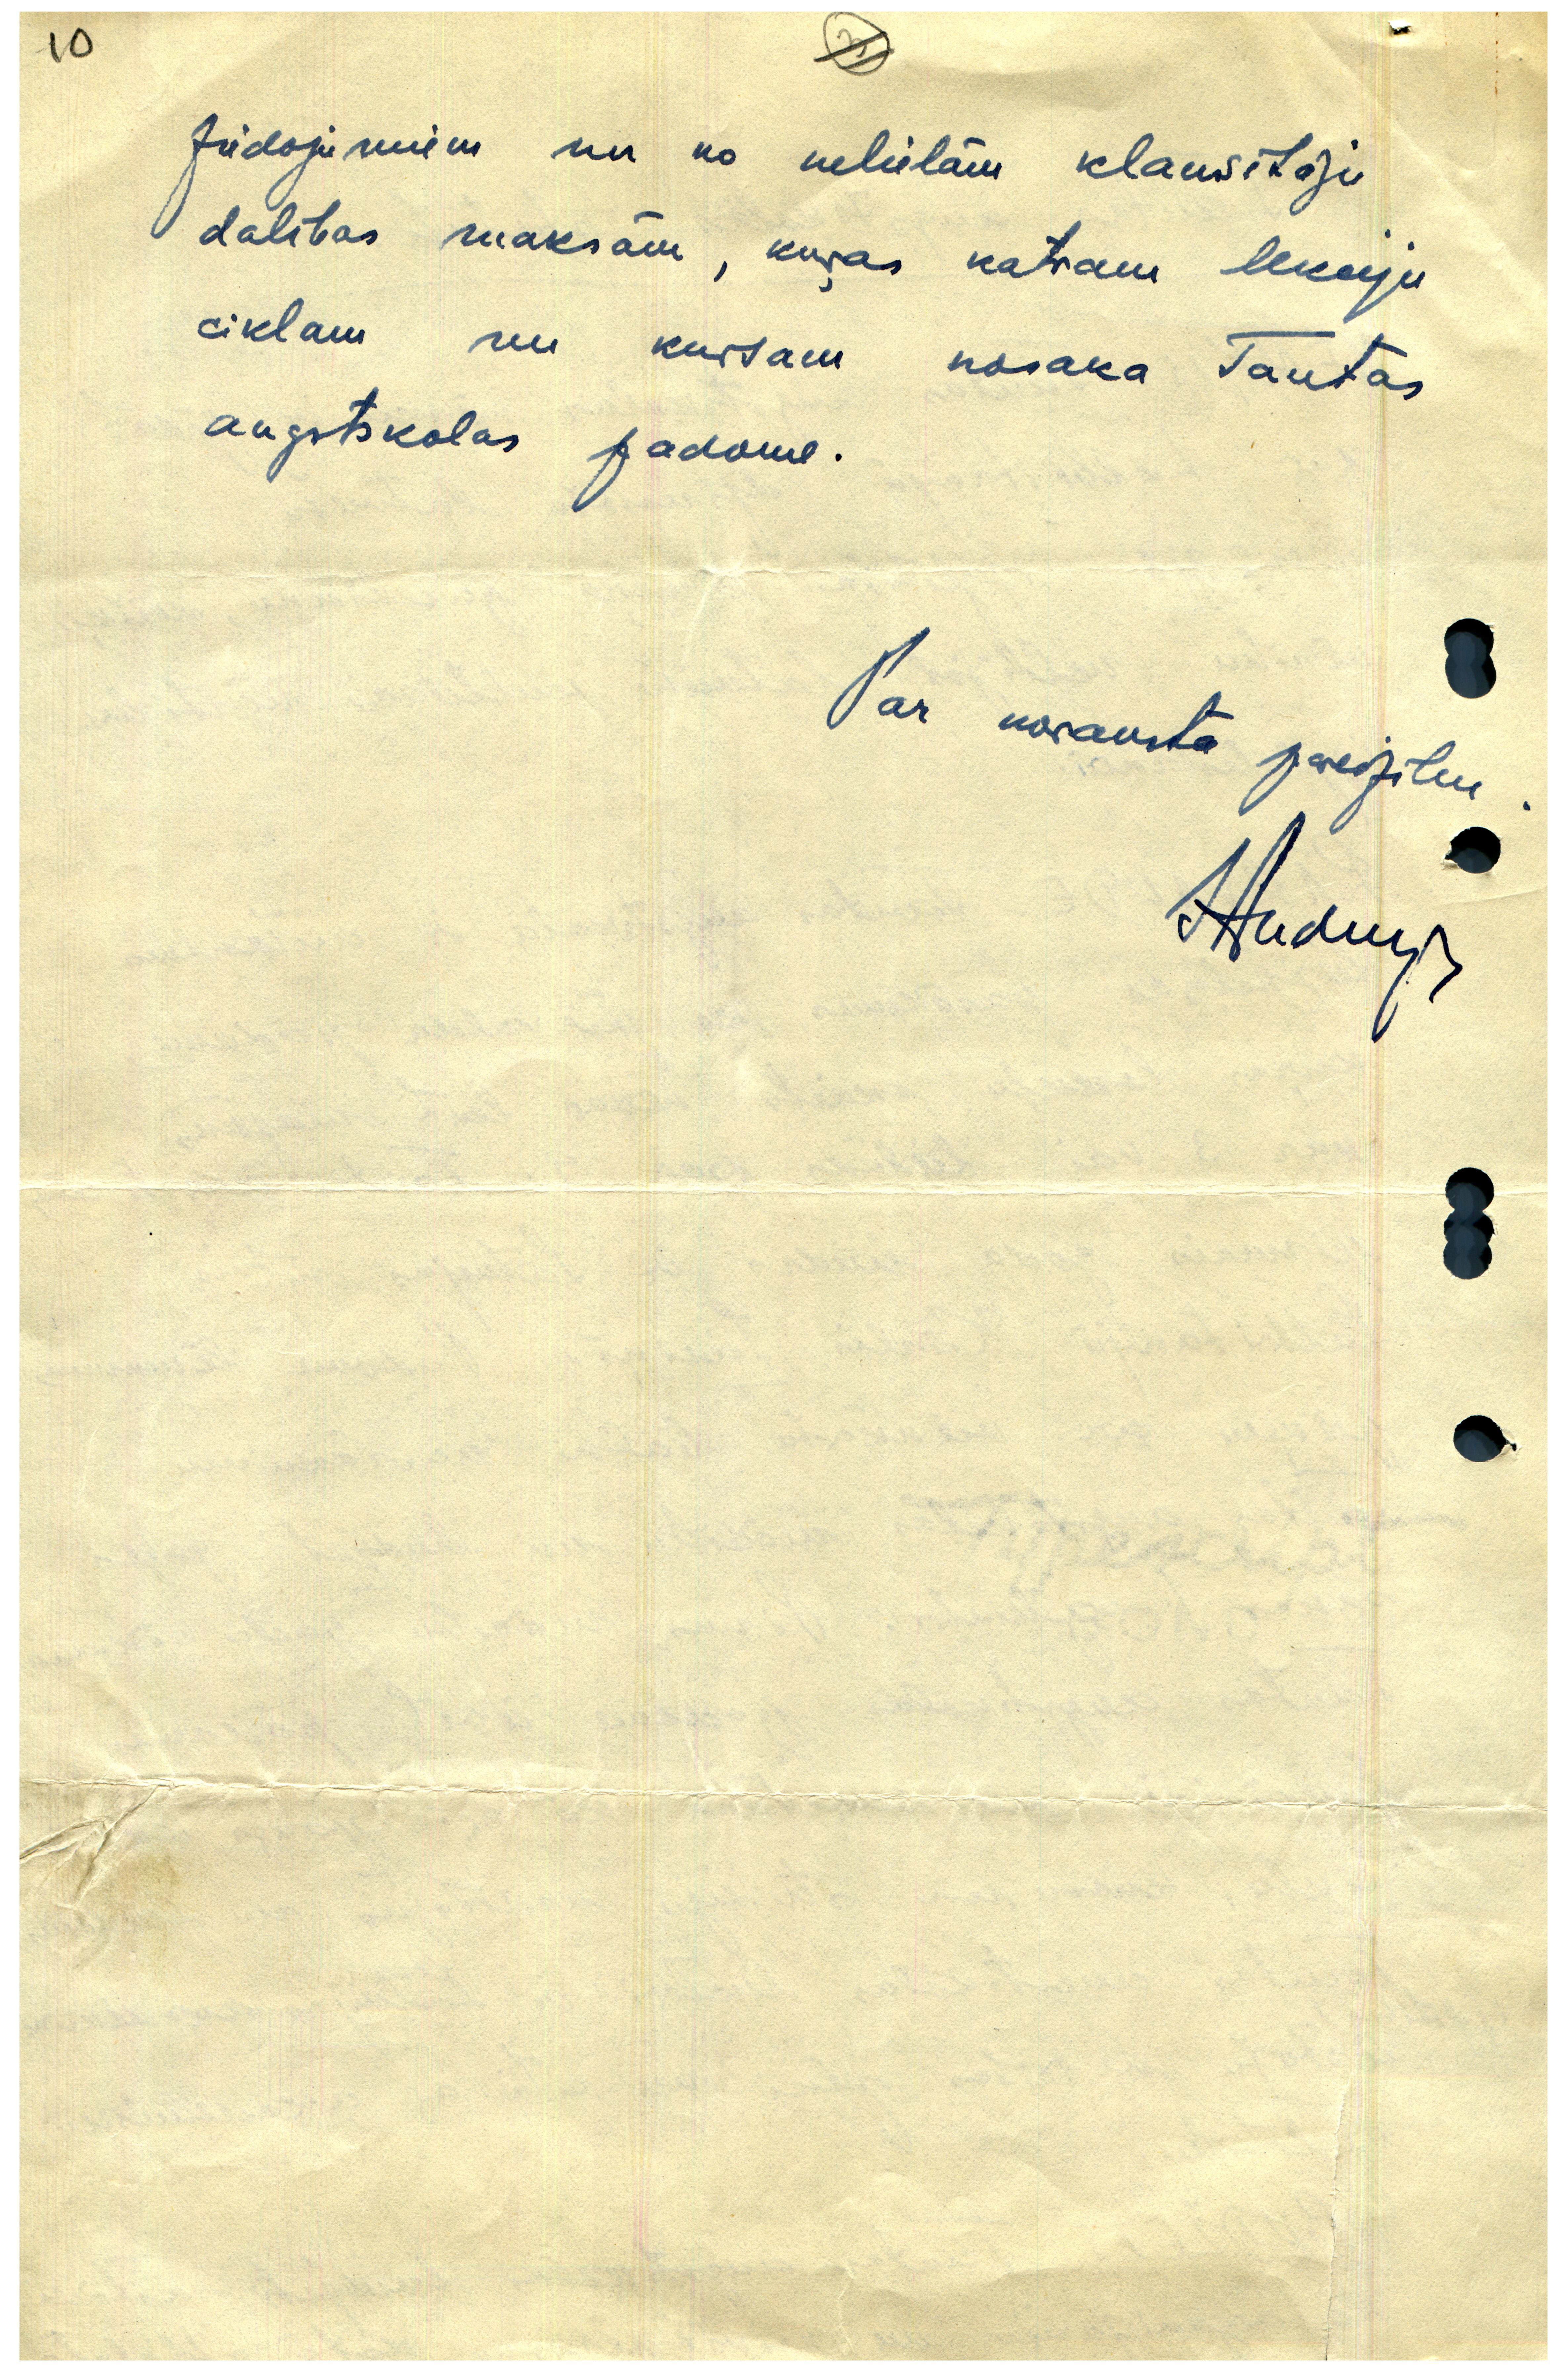 10
ziedojumiem un no nelielām klausītāju
dalības maksām, kuŗas katram lekciju
ciklam un kursam nosaka Tautas
augstskolas padome.
Par noraksta pareizību